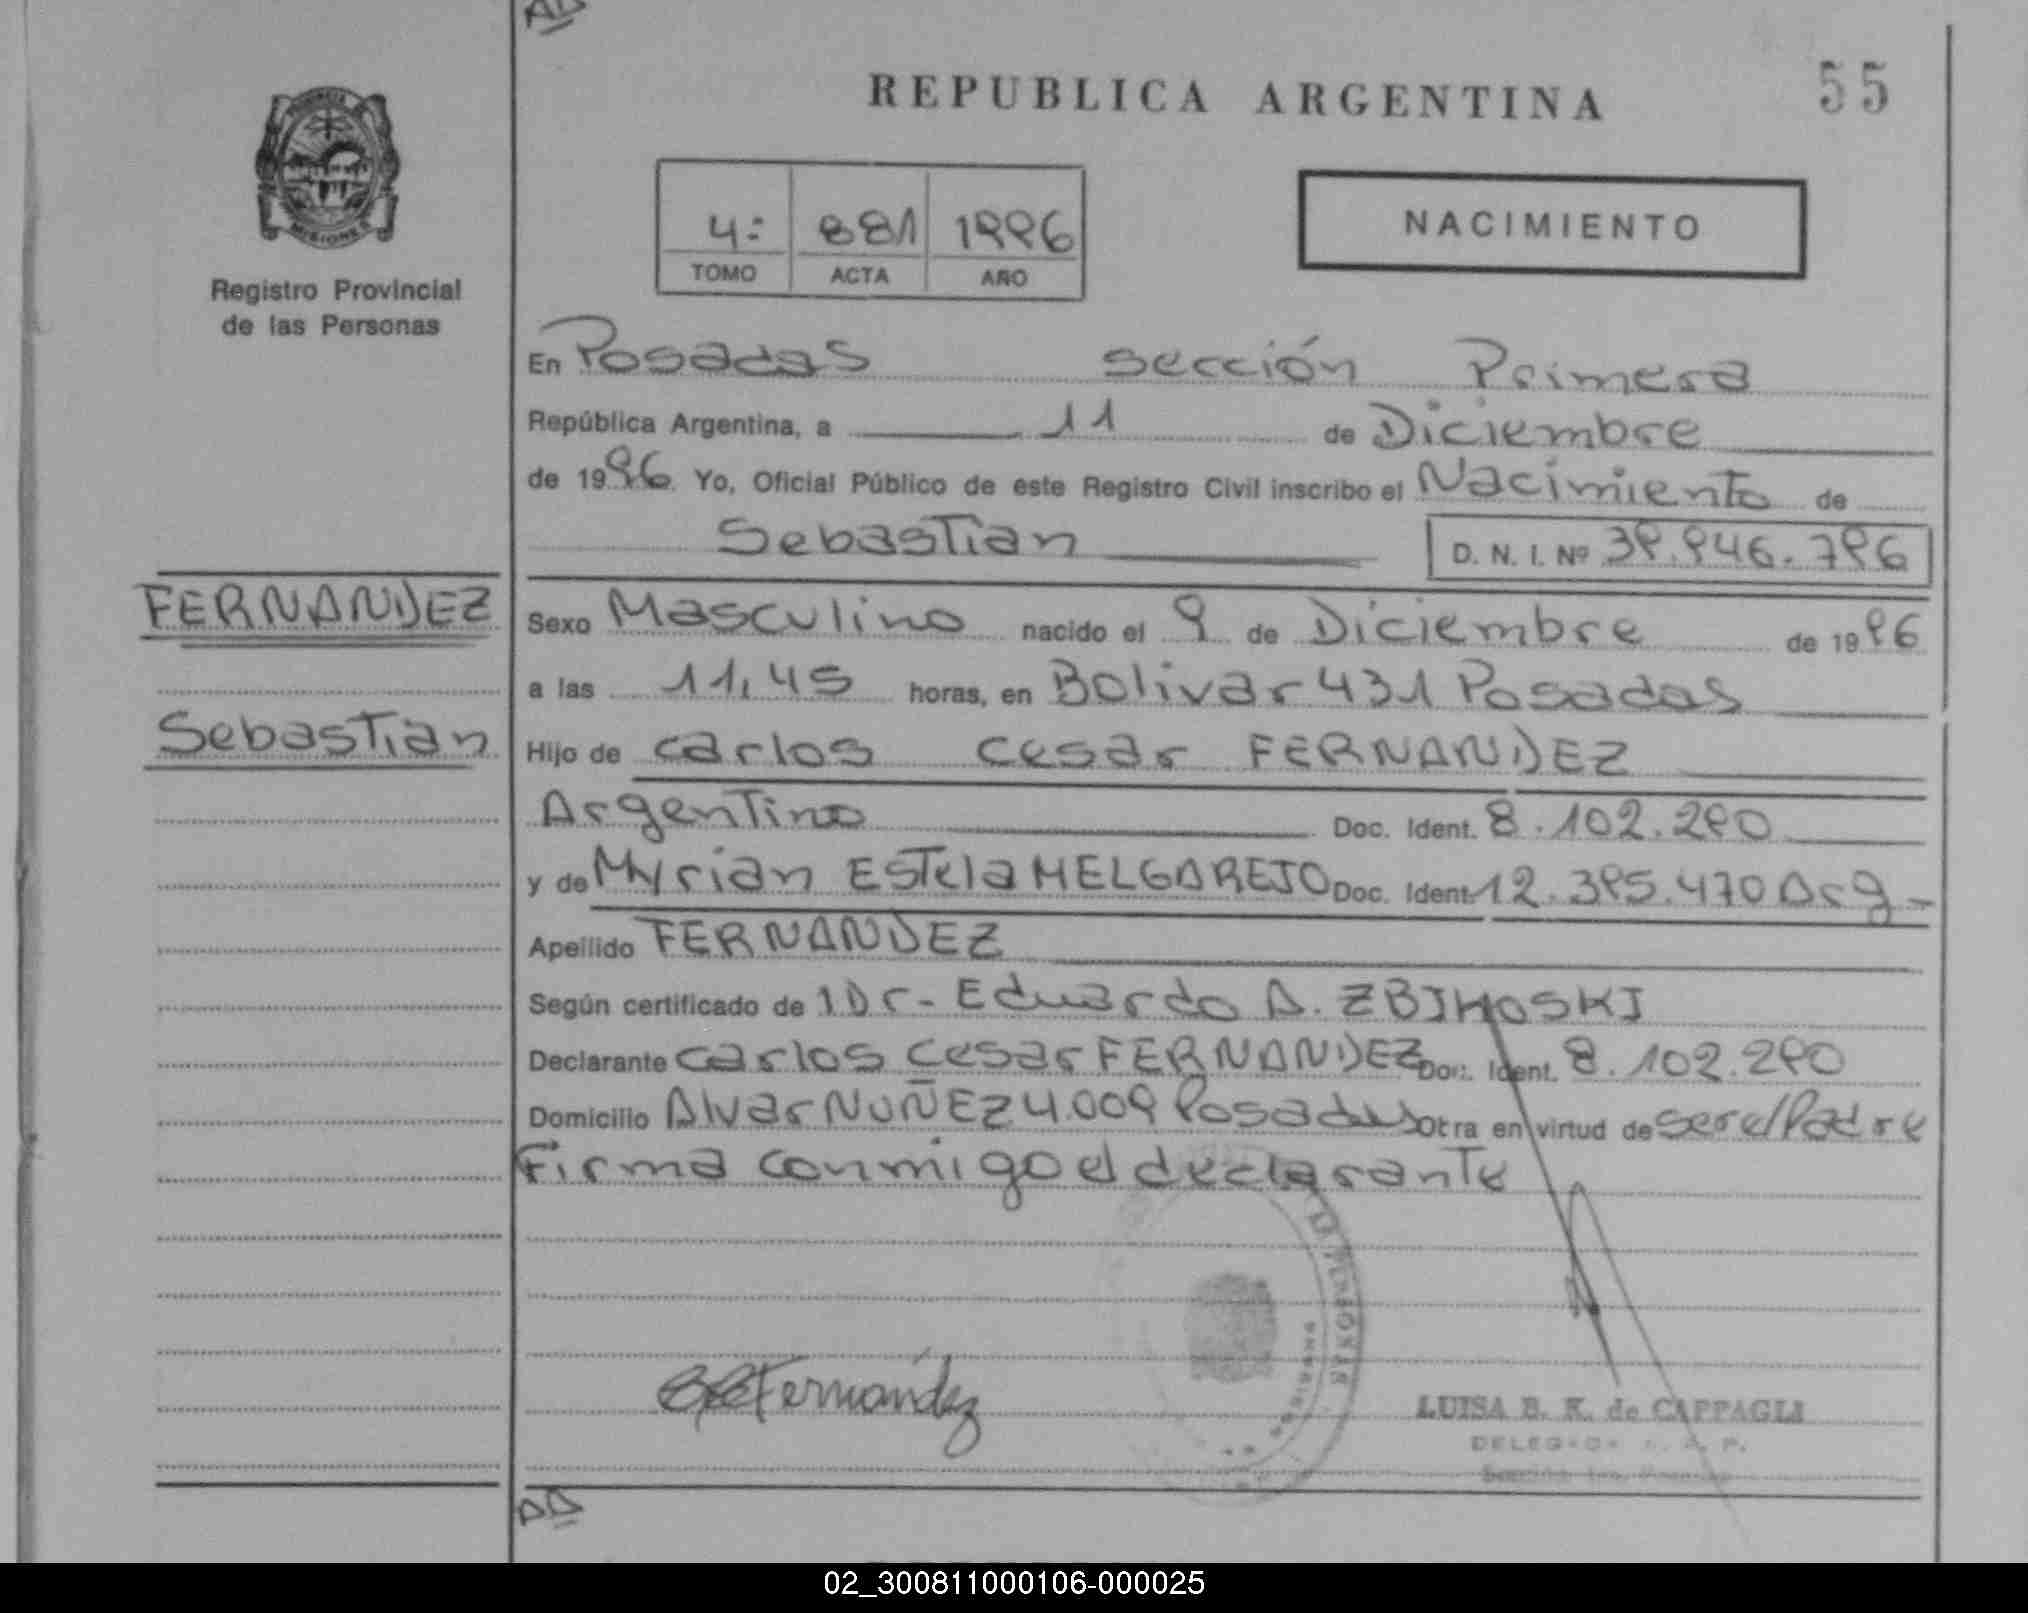 REPUBLICA ARGENTINA
55
PROVINCIA DE
MISIONES
Registro Provincial
de las Personas
4º 881 1996
TOMO ACTA AÑO
NACIMIENTO
En Posadas sección Primera
República Argentina, a 11 de Diciembre
de 1996 Yo, Oficial Público de este Registro Civil inscribo el Nacimiento de
Sebastian D. N. I. Nº 39.946.796
FERNANDEZ
Sebastian
Sexo Masculino nacido el 9 de Diciembre de 1996
a las 11,45 horas, en Bolivar 431 Posadas
Hijo de Carlos Cesar FERNANDEZ
Argentino Doc. Ident. 8.102.290
y de Myrian Estela MELGAREJO Doc. Ident. 12.395.470 Arg-
Apellido FERNANDEZ
Según certificado de 1 Dr- Eduardo A. ZBIHOSKI
Declarante Carlos Cesar FERNANDEZ Doc. Ident. 8.102.290
Domicilio Alvar NUÑEZ 4.009 Posadas Otra en virtud de ser el Padre
Firma conmigo el declarante
Fernández
LUISA B. K. de CAPPAGLI
02_300811000106-000025